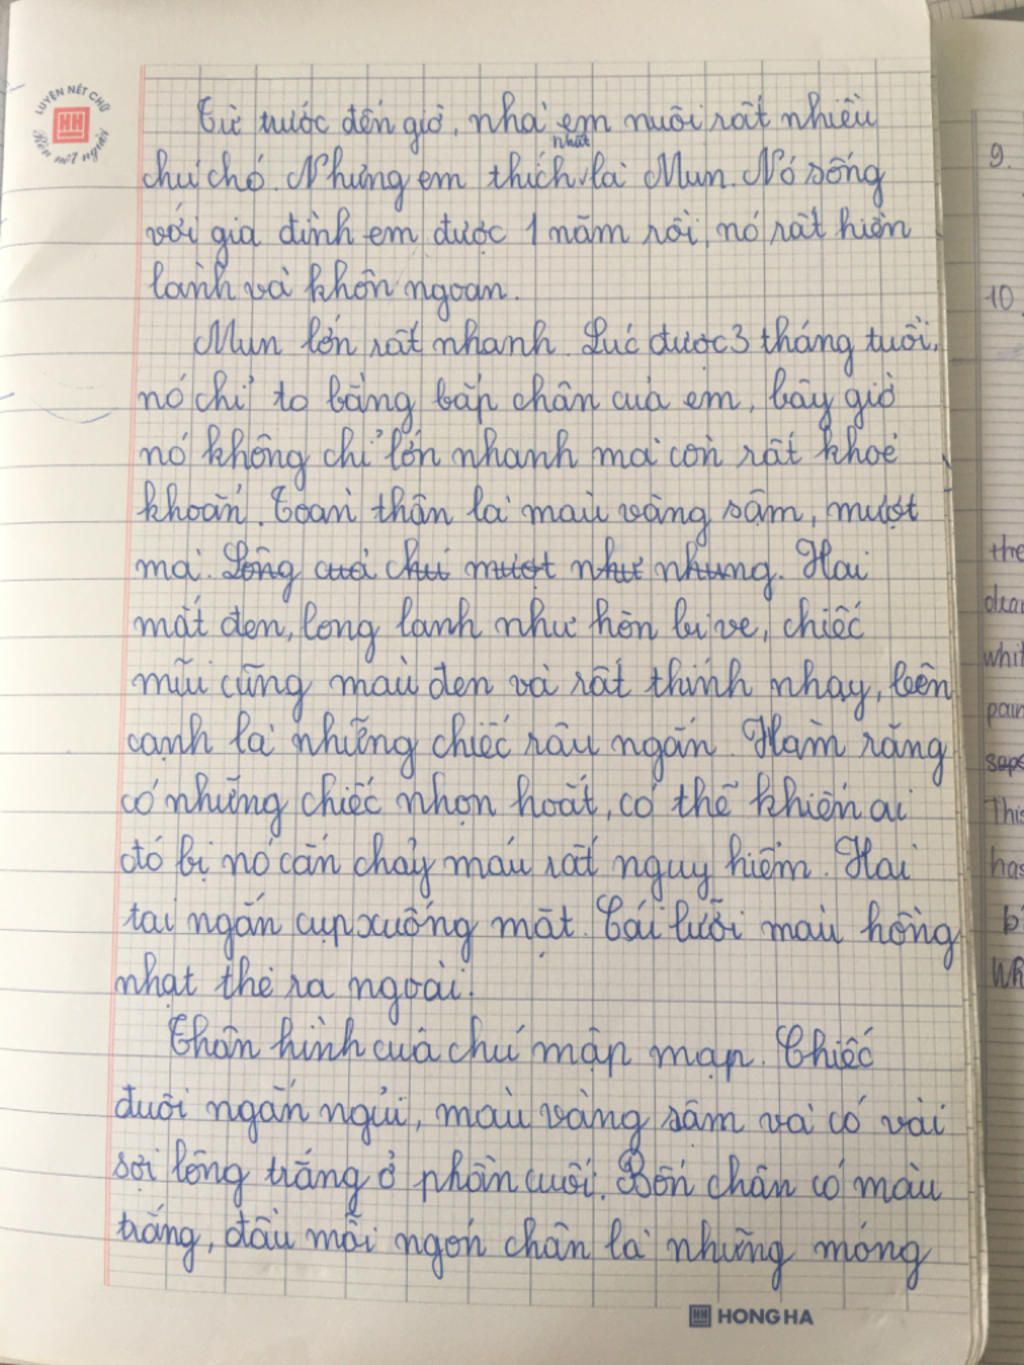 LUYỆN NÉT CHỮ
HH
Rèn nết người
Từ trước đến giờ, nhà em nuôi rất nhiều
nhất
chú chó. Nhưng em thích là Mun. Nó sống
với gia đình em được 1 năm rồi, nó rất hiền
lành và khôn ngoan.
Mun lớn rất nhanh. Lúc được 3 tháng tuổi,
nó chỉ to bằng bắp chân của em, bây giờ
nó không chỉ lớn nhanh mà còn rất khoẻ
khoắn. Toàn thân là màu vàng sậm, mượt
mà. Lông của chú mượt như nhung. Hai
mắt đen, long lanh như hòn bi ve, chiếc
mũi cũng màu đen và rất thính nhạy, bên
cạnh là những chiếc râu ngắn. Hàm răng
có những chiếc nhọn hoắt, có thể khiến ai
đó bị nó cắn chảy máu rất nguy hiểm. Hai
tai ngắn cụp xuống mặt. Cái lưỡi màu hồng
nhạt thè ra ngoài.
Thân hình của chú mập mạp. Chiếc
đuôi ngắn ngủi, màu vàng sẫm và có vài
sợi lông trắng ở phần cuối. Bốn chân có màu
trắng, đầu mỗi ngón chân là những móng
HH HONG HA
9.
10
the
whit
pain
This
has
b
Wh